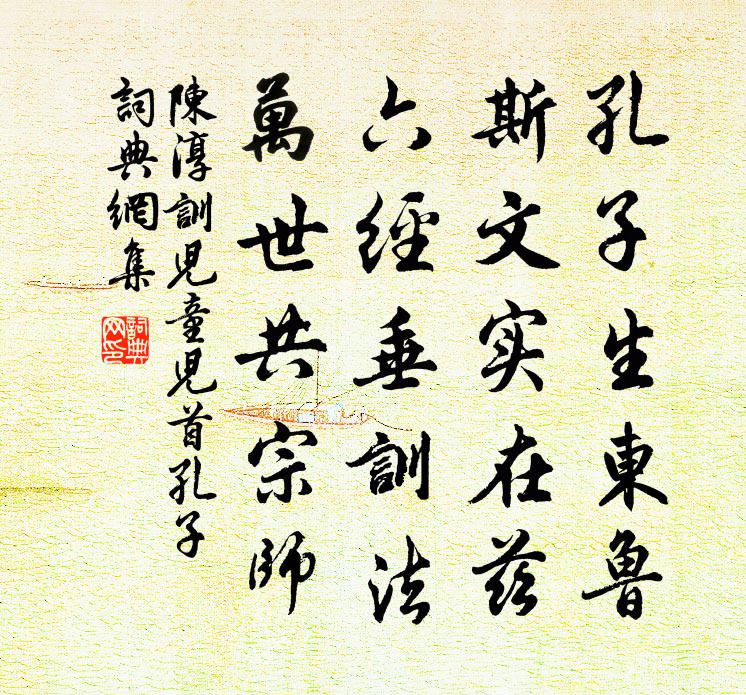 孔子生東魯
斯文实在茲
六經垂訓法
萬世共宗師
陳淳訓児童児首孔子
詞典網集
詞典网印